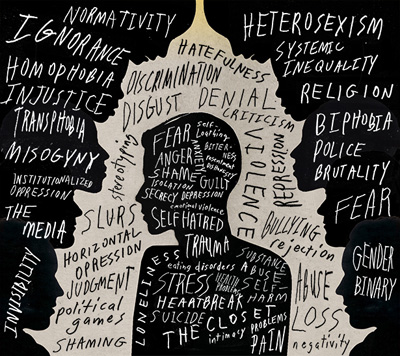 NORMATIVITY
IGNORANCE
HOMOPHOBIA
INJUSTICE
TRANSPHOBIA
MISOGYNY
INSTITUTIONALIZED
OPPRESSION
THE
MEDIA
INVISIBILITY
HATEFULNESS
DISCRIMINATION
DISGUST
DENIAL
CRITICISM
stereotyping
VIOLENCE
DEPRESSION
SLURS
HORIZONTAL
OPRESSION
JUDGMENT
political
games
SHAMING
BULLYING
rejection
ABUSE
LOSS
negativity
HETEROSEXISM
SYSTEMIC
INEQUALITY
RELIGION
BIPHOBIA
POLICE
BRUTALITY
FEAR
GENDER
BINARY
FEAR
self-
loathing
ANXIETY
BITTER-
NESS
ANGER
resentment
SHAME
GUILT
ISOLATION
SECRECY DEPRESSION
emotional violence
SELF HATRED
TRAUMA
LONELINESS
eating disorders
SUBSTANCE
ABUSE
STRESS
SELF-
HARM
HEARTBREAK
SUICIDE
THE CLOSET
intimacy
PROBLEMS
PAIN